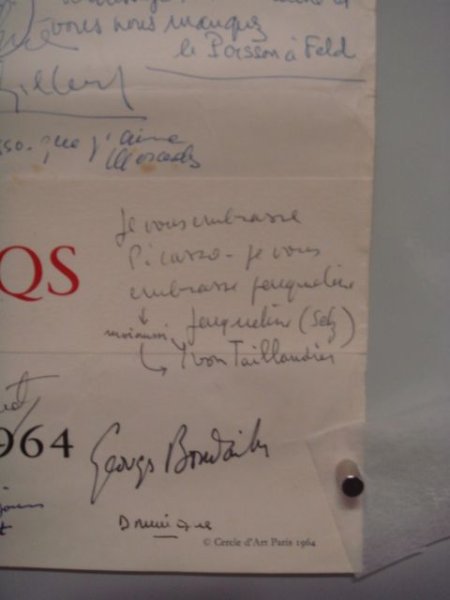 vous nous manquez
le Poisson à Feld
Gilbert
que j'aime
Mercedes
Je vous embrasse
QS
Picasso - je vous
embrasse Jacqueline
Jacqueline (Selz)
moi aussi
Yvon Taillandier
964
Georges Boudaille
Dominique
© Cercle d'Art Paris 1964